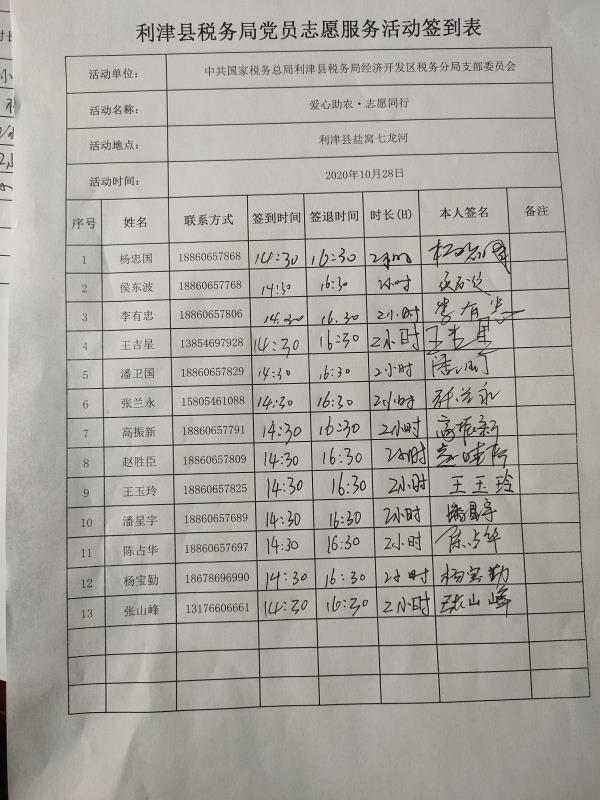 利津县税务局党员志愿服务活动签到表
活动单位： 中共国家税务总局利津县税务局经济开发区税务分局支部委员会
活动名称： 爱心助农·志愿同行
活动地点： 利津县盐窝七龙河
活动时间： 2020年10月28日
序号 姓名 联系方式 签到时间 签退时间 时长(H) 本人签名 备注
1 杨忠国 18860657868 14:30 16:30 2小时 杨忠国
2 侯东波 18860657768 14:30 16:30 2小时
3 李有忠 18860657806 14:30 16:30 2小时 李有忠
4 王吉星 13854697928 14:30 16:30 2小时 王吉星
5 潘卫国 18860657829 14:30 16:30 2小时
6 张兰永 15805461088 14:30 16:30 2小时 张兰永
7 高振新 18860657791 14:30 16:30 2小时 高振新
8 赵胜臣 18860657809 14:30 16:30 2小时
9 王玉玲 18860657825 14:30 16:30 2小时 王玉玲
10 潘星宇 18860657689 14:30 16:30 2小时 潘星宇
11 陈占华 18860657697 14:30 16:30 2小时 陈占华
12 杨宝勤 18678696990 14:30 16:30 2小时 杨宝勤
13 张山峰 13176606661 14:30 16:30 2小时 张山峰